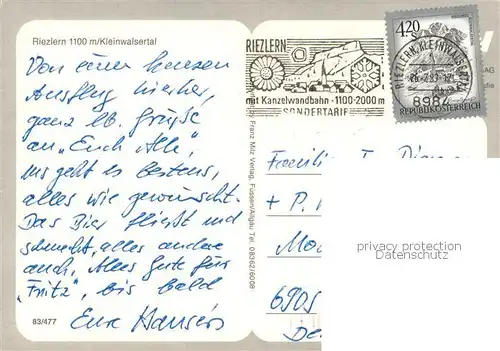 Riezlern 1100 m/Kleinwalsertal
Von einem kurzen
Ausflug hierher,
ganz lb. Grüße
an „Euch Alle",
uns geht es bestens,
alles wie gewünscht.
Das Bier fließt und
schmeckt, alles andere
auch, Alles Gute für
„Fritz", bis bald
Eure
83/477
RIEZLERN
mit Kanzelwandbahn · 1100-2000 m
SONDERTARIF
420
RIEZLERN, KLEINWALSERTAL
8984
REPUBLIK ÖSTERREICH
Franz Milz Verlag, Füssen/Allgäu Tel. 08362/6008
AG
Familie
+ P.
6905
privacy protection
Datenschutz